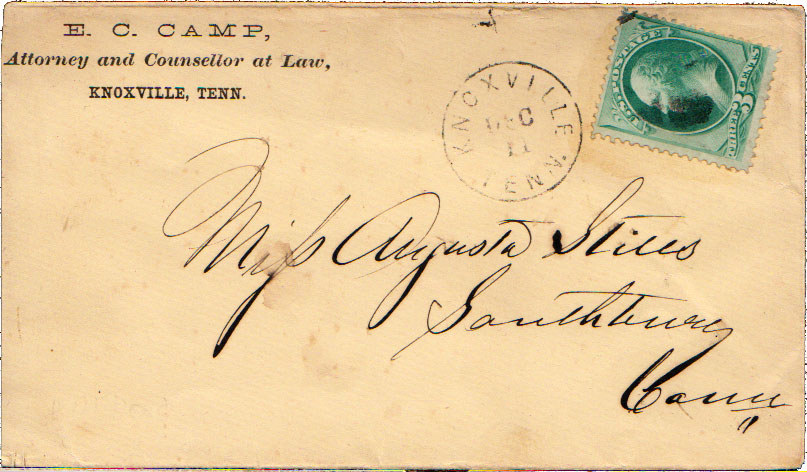 E. C. CAMP,
Attorney and Counsellor at Law,
KNOXVILLE, TENN.
KNOXVILLE
DEC
11
TENN.
U.S. POSTAGE
Miss Augusta Stiles
Southbury
Conn